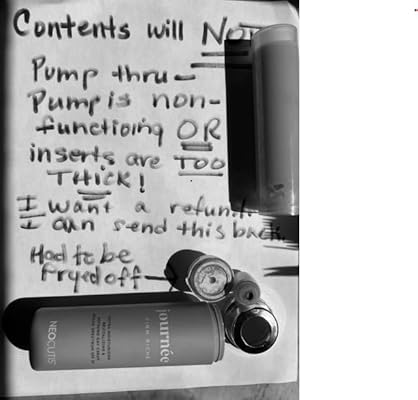 Contents will NOT
Pump thru -
Pump is non-
functioning OR
inserts are TOO
THICK!
I want a refund.
I can send this back
Had to be
Pryed off
journée
FIRM RICHE
NEOCUTIS